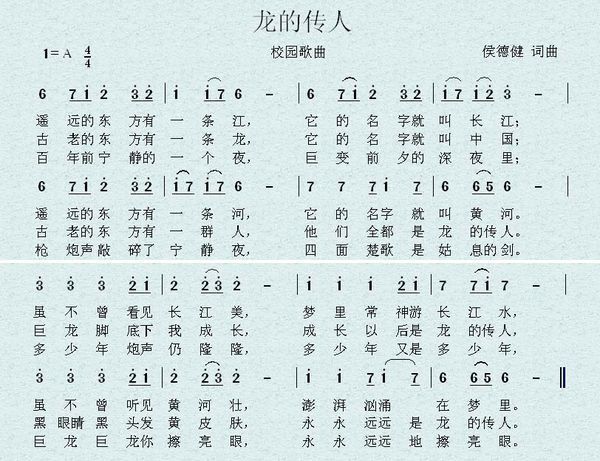 龙的传人
1=A 4/4 校园歌曲 侯德健 词曲
6 7 1 2 3 2 | 1 1 7 6 - | 6 7 1 2 3 2 | 1 7 1 2 3 - |
遥 远的 东 方有 一 条 江， 它 的 名 字就 叫 长 江；
古 老的 东 方有 一 条 龙， 它 的 名 字就 叫 中 国；
百 年前 宁 静的 一 个 夜， 巨 变 前 夕的 深 夜 里；
6 7 1 2 3 2 | 1 7 1 7 6 - | 7 7 7 1 7 | 6 6 5 6 - |
遥 远的 东 方有 一 条 河， 它 的 名字 就 叫 黄 河。
古 老的 东 方有 一 群 人， 他 们 全都 是 龙 的传 人。
枪 炮声 敲 碎了 宁 静 夜， 四 面 楚歌 是 姑 息的 剑。
3 3 3 2 1 | 2 2 3 2 - | 1 1 1 2 1 | 7 7 1 7 -
虽 不 曾 看见 长 江 美， 梦 里 常 神游 长 江 水，
巨 龙 脚 底下 我 成 长， 成 长 以 后是 龙 的传 人，
多 少 年 炮声 仍 隆 隆， 多 少 年 又是 多 少 年，
3 3 3 2 1 | 2 2 3 2 - | 1 1 7 1 7 | 6 6 5 6 -
虽 不 曾 听见 黄 河 壮， 澎 湃 汹涌 在 梦 里。
黑 眼睛 黑 头发 黄 皮 肤， 永 永 远远 是 龙 的传 人。
巨 龙 巨 龙你 擦 亮 眼， 永 永 远远 地 擦 亮 眼。